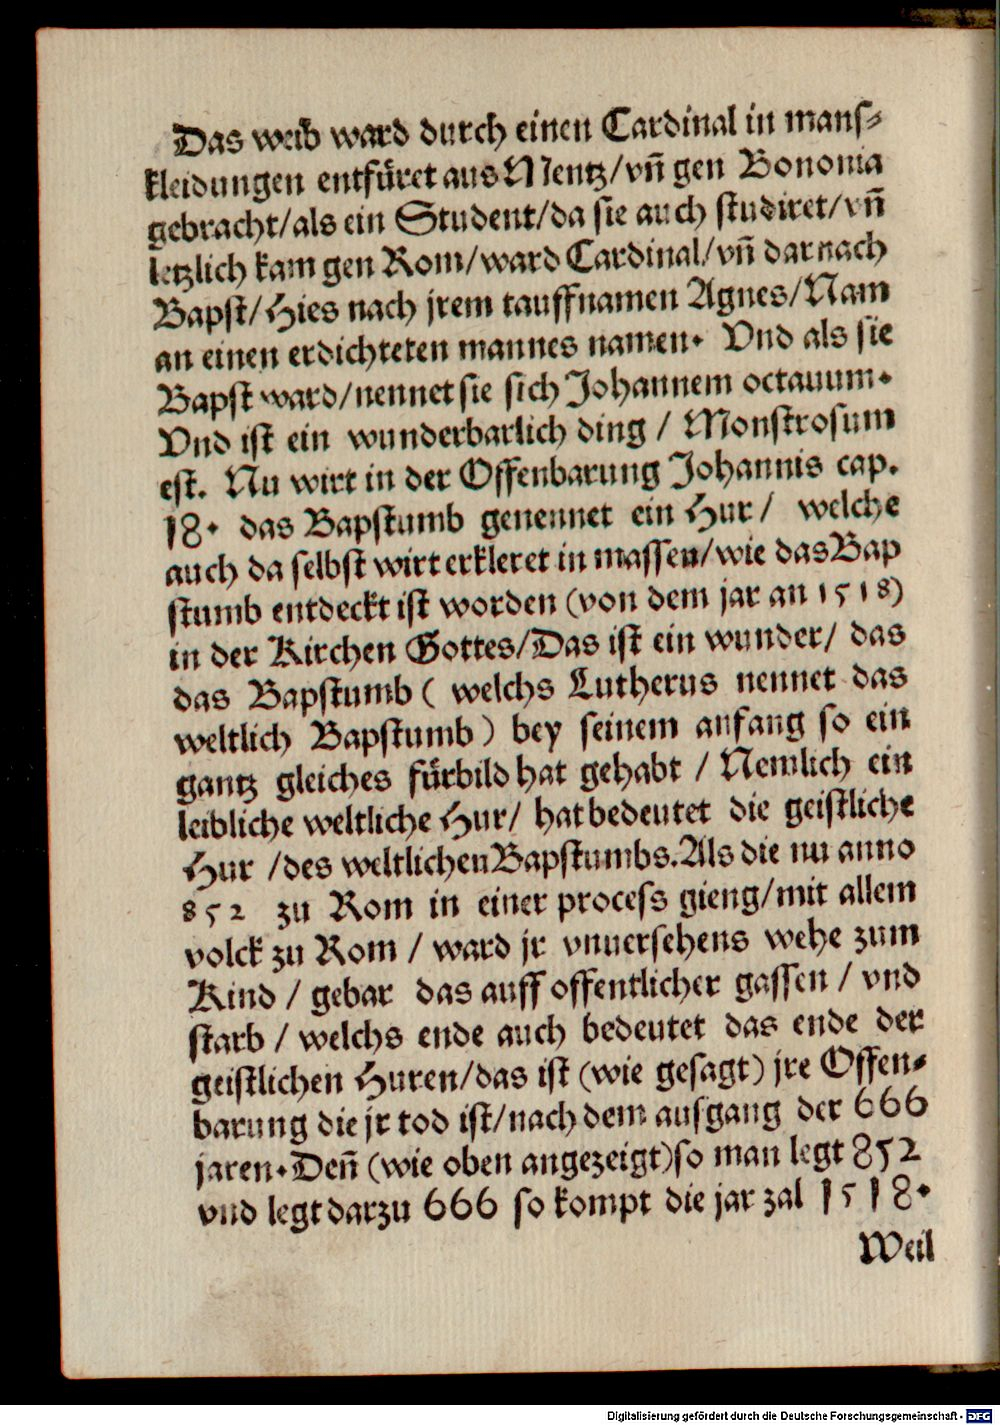 Das weib ward durch einen Cardinal in mans⸗
kleidungen entfüret aus Mentz/vñ gen Bononia
gebracht/als ein Student/da sie auch studiret/vñ
letzlich kam gen Rom/ward Cardinal/vñ darnach
Bapst/Hies nach jrem tauffnamen Agnes/Nam
an einen erdichteten mannes namen. Vnd als sie
Bapst ward/nennet sie sich Johannem octauum.
Vnd ist ein wunderbarlich ding / Monstrosum
est. Nu wirt in der Offenbarung Johannis cap.
18. das Bapstumb genennet ein Hur / welche
auch da selbst wirt erkleret in massen/wie das Bap
stumb entdeckt ist worden (von dem jar an 1518)
in der Kirchen Gottes/Das ist ein wunder/ das
das Bapstumb ( welchs Lutherus nennet das
weltlich Bapstumb ) bey seinem anfang so ein
gantz gleiches fürbild hat gehabt / Nemlich ein
leibliche weltliche Hur/ hat bedeutet die geistliche
Hur /des weltlichen Bapstumbs. Als die nu anno
852 zu Rom in einer process gieng/mit allem
volck zu Rom / ward jr vnuersehens wehe zum
Kind / gebar das auff offentlicher gassen / vnd
starb / welchs ende auch bedeutet das ende der
geistlichen Huren/das ist (wie gesagt) jre Offen⸗
barung die jr tod ist/nach dem ausgang der 666
jaren. Deñ (wie oben angezeigt) so man legt 852
vnd legt darzu 666 so kompt die jar zal 1518.
Weil
Digitalisierung gefördert durch die Deutsche Forschungsgemeinschaft - DFG